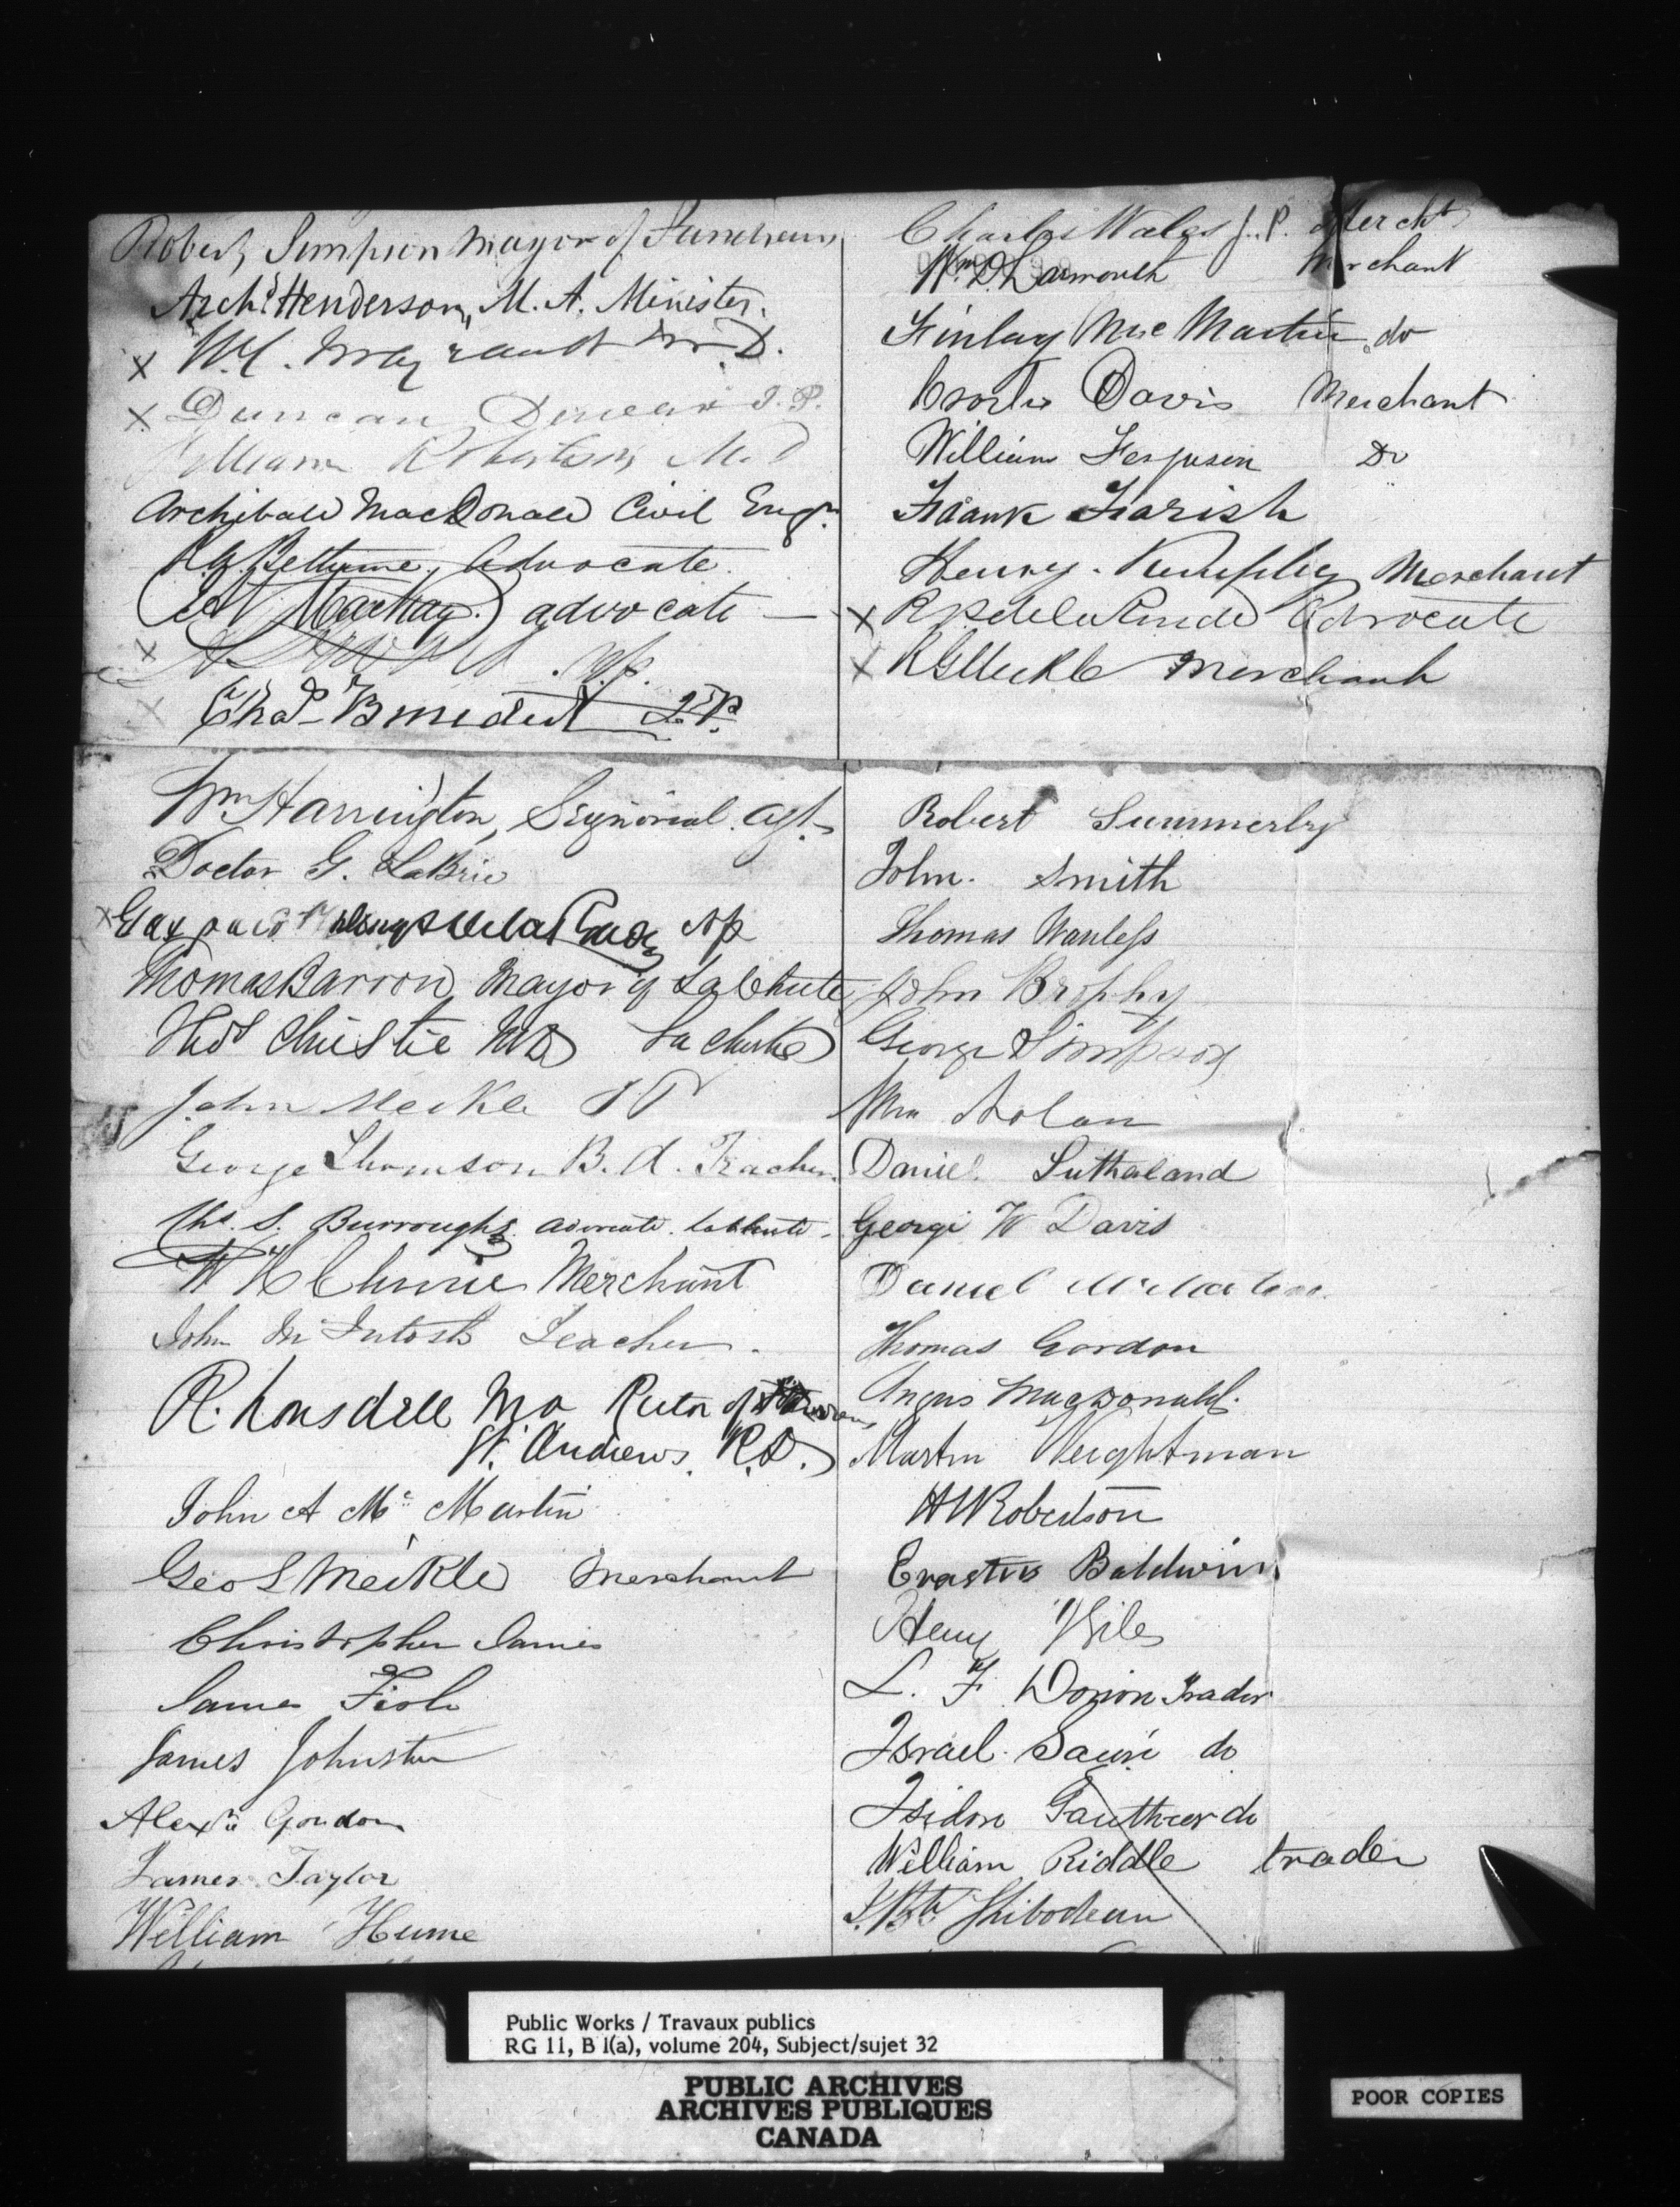 Robert Simpson Mayor of
Archd Henderson, M. A. Minister.
x W. M.D.
x Duncan J.P.
William Robertson M.D
Archibald MacDonald Civil Engr.
Bethune, Advocate.
Mackay advocate —
x N.P.
x Chas Benedict J.P.
Wm Harrington, Seignorial Agt.
Doctor G. LaBrie
x de la Ronde NP
Thomas Barron Mayor of LaChute
Thos Christie MD La Chute
John Meikle JP
George Thomson B. A. Teacher.
Chs. S. Burroughs advocate. Lachute.
Merchant
John McIntosh Teacher.
R. Lonsdell MA Rector of St Andrews
St. Andrews. R.D.
John A McMartin
Geo S Meikle Merchant
Christopher James
James Fish
James Johnston
Alexr Gordon
James Taylor
William Hume
Charles Wales J. P. Mercht
Wm D. Larmouth Merchant
Finlay McMartin do
Charles Davis Merchant
William Ferguson Do
Fraank Farish
Henry Kempley Merchant
x de la Ronde Advocate
x R G Meikle Merchant
Robert Summerby
John. Smith
Thomas Wanless
John Brophy
George Simpson
Wm Nolan
Daniel Sutherland
George W Davis
Daniel
Thomas Gordon
Angus MacDonald.
Martin Weightman
H W Robertson
Erastus Baldwin
Henry Wiles
L. F. Dorion Trader
Israel do
Isidore Gauthier do
William Riddle trader
J. Bte Thibodeau
Public Works / Travaux publics
RG 11, B 1(a), volume 204, Subject/sujet 32
PUBLIC ARCHIVES
ARCHIVES PUBLIQUES
CANADA
POOR COPIES